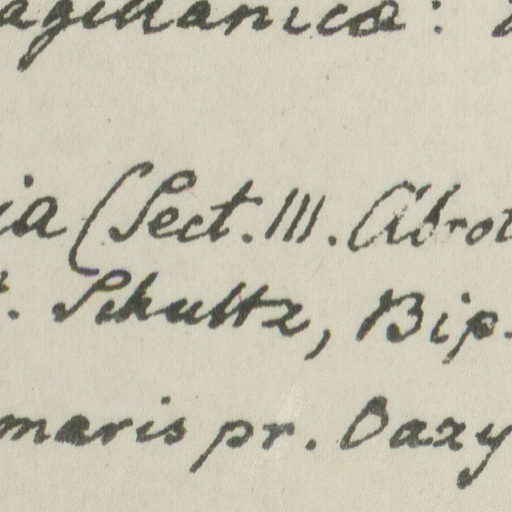 agellanicæ:
ia (Sect. III. Abrot
. Schultz, Bip.
maris pr. Oaxy